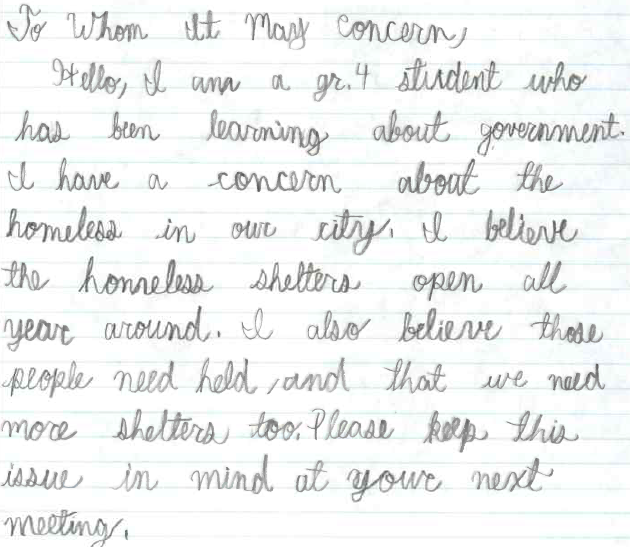 To Whom It May Concern,
Hello, I am a gr. 4 student who
has been learning about government.
I have a concern about the
homeless in our city. I believe
the homeless shelters open all
year around. I also believe those
people need held, and that we need
more shelters too. Please keep this
issue in mind at your next
meeting.